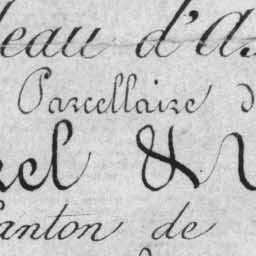 leau d'As
Parcellaire d
rel & V
anton de